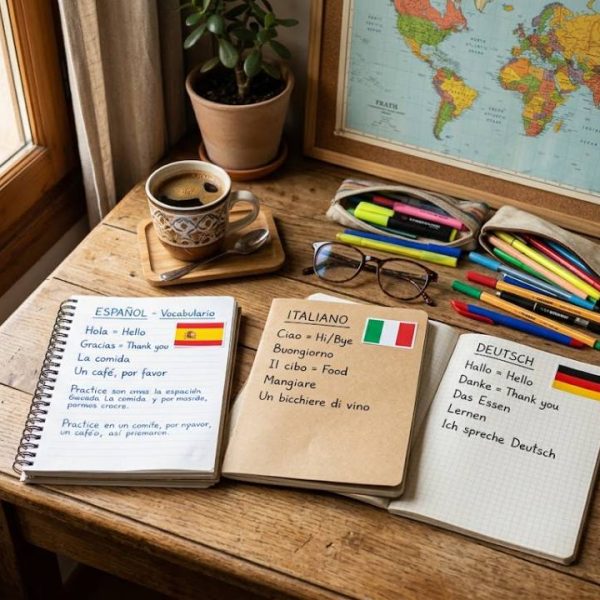 ESPAÑOL - Vocabulario
Hola = Hello
Gracias = Thank you
La comida
Un café, por favor
Practice son
la espación
La comida y por
Practice en un comite, por
un
así
ITALIANO
Ciao = Hi/Bye
Buongiorno
Il cibo = Food
Mangiare
Un bicchiere di vino
DEUTSCH
Hallo = Hello
Danke = Thank you
Das Essen
Lernen
Ich spreche Deutsch